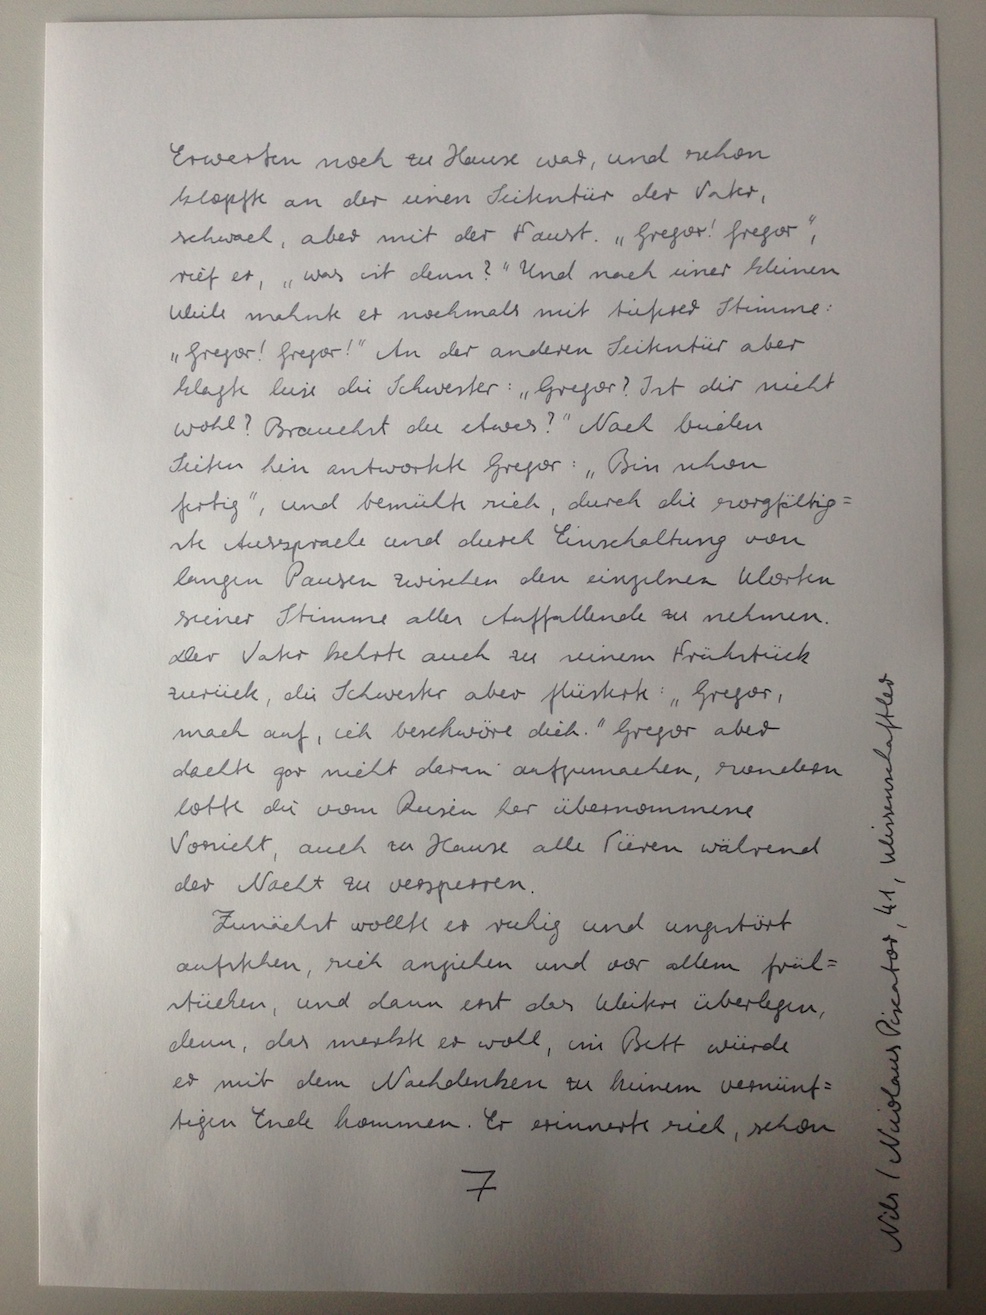 Erwarten noch zu Hause war, und schon
klopfte an der einen Seitentür der Vater,
schwach, aber mit der Faust. „Gregor! Gregor",
rief er, „was ist denn?" Und nach einer kleinen
Weile mahnte er nochmals mit tieferer Stimme:
„Gregor! Gregor!" An der anderen Seitentür aber
klagte leise die Schwester: „Gregor? Ist dir nicht
wohl? Brauchst du etwas?" Nach beiden
Seiten hin antwortete Gregor: „Bin schon
fertig", und bemühte sich, durch die sorgfältig=
ste Aussprache und durch Einschaltung von
langen Pausen zwischen den einzelnen Worten
seiner Stimme alles Auffallende zu nehmen.
Der Vater kehrte auch zu seinem Frühstück
zurück, die Schwester aber flüsterte: „Gregor,
mach auf, ich beschwöre dich." Gregor aber
dachte gar nicht daran aufzumachen, sondern
lobte die vom Reisen her übernommene
Vorsicht, auch zu Hause alle Türen während
der Nacht zu versperren.
Zunächst wollte er ruhig und ungestört
aufstehen, sich anziehen und vor allem früh=
stücken, und dann erst das Weitere überlegen,
denn, das merkte er wohl, im Bett würde
er mit dem Nachdenken zu keinem vernünf=
tigen Ende kommen. Er erinnerte sich, schon
7
Nils / Nicolaus Piscator, 41, Wissenschaftler